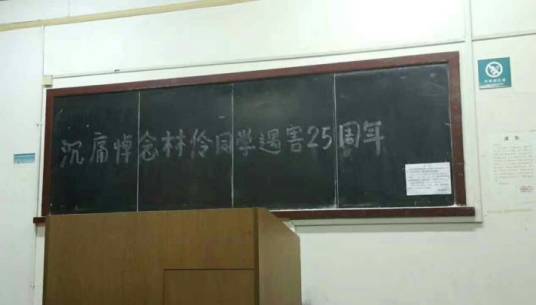 沉痛悼念林伶同学遇害25周年